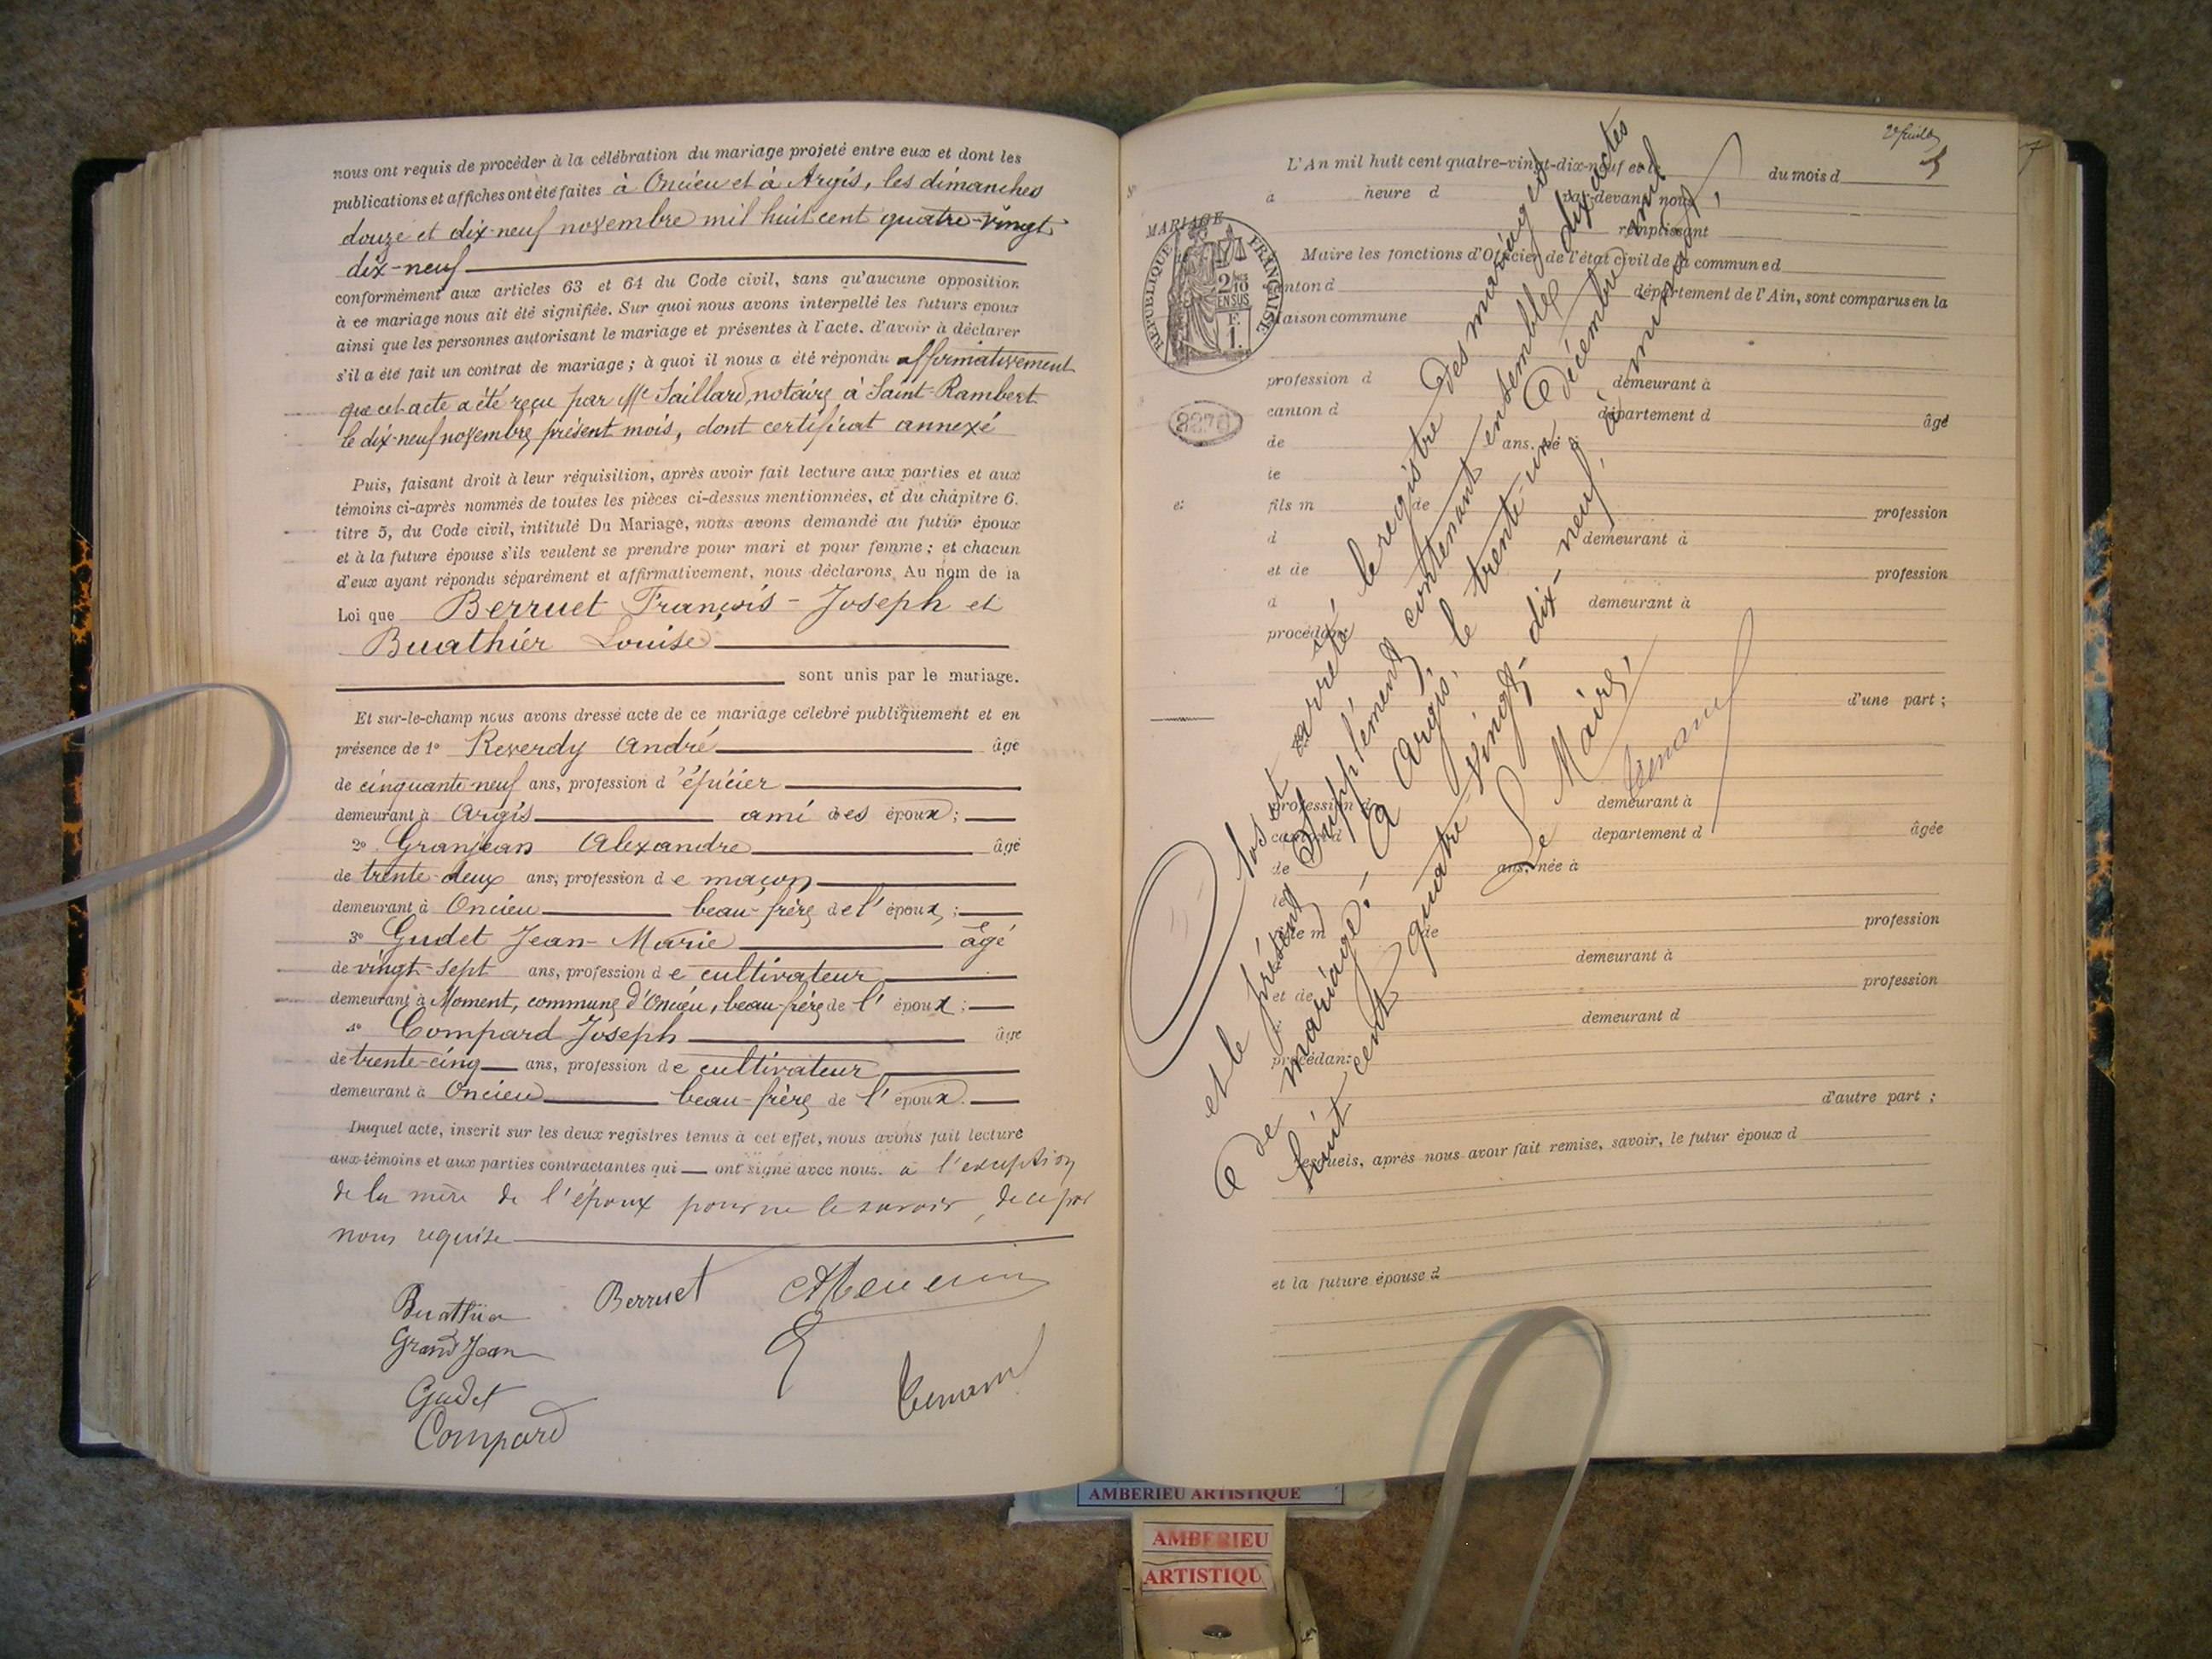 nous ont requis de procéder à la célébration du mariage projeté entre eux et dont les
publications et affiches ont été faites à Oncieu et à Argis, les dimanches
douze et dix-neuf novembre mil huit cent quatre-vingt
dix-neuf
conformément aux articles 63 et 64 du Code civil, sans qu'aucune opposition
à ce mariage nous ait été signifiée. Sur quoi nous avons interpellé les futurs epoux
ainsi que les personnes autorisant le mariage et présentes à l'acte. d'avoir à déclarer
s'il a été fait un contrat de mariage ; à quoi il nous a été répondu affirmativement
que cet acte a été reçu par Me Saillard, notaire à Saint-Rambert
le dix-neuf novembre présent mois, dont certificat annexé
Puis, faisant droit à leur réquisition, après avoir fait lecture aux parties et aux
témoins ci-après nommés de toutes les pièces ci-dessus mentionnées, et du châpitre 6.
titre 5, du Code civil, intitulé Du Mariage, nous avons demandé au futur époux
et à la future épouse s'ils veulent se prendre pour mari et pour femme ; et chacun
d'eux ayant répondu séparément et affirmativement, nous déclarons Au nom de la
Loi que Berruet François-Joseph et
Buathier Louise
sont unis par le mariage.
Et sur-le-champ nous avons dressé acte de ce mariage célebré publiquement et en
présence de 1º Reverdy André âgé
de cinquante-neuf ans, profession d'épicier
demeurant à Argis ami des époux ;
2º Granjean Alexandre âgé
de trente-deux ans, profession de maçon
demeurant à Oncieu beau-frère de l'époux ;
3º Gudet Jean-Marie âgé
de vingt-sept ans, profession de cultivateur
demeurant à Moment, commune d'Oncieu, beau-frère de l'époux ;
4º Compard Joseph âgé
de trente-cinq ans, profession de cultivateur
demeurant à Oncieu beau-frère de l'époux.
Duquel acte, inscrit sur les deux registres tenus à cet effet, nous avons fait lecture
aux témoins et aux parties contractantes qui ont signé avec nous. à l'exception
de la mère de l'époux pour ne le savoir, de ce par
nous requise
Buathier Berruet
GrandJean
Gudet
Compard
2e feuille
5
L'An mil huit cent quatre-vingt-dix-neuf et le du mois d
à heure d par-devant nous
remplissant
Maire les fonctions d'Officier de l'état civil de la commune d
canton d département de l'Ain, sont comparus en la
maison commune
MARIAGE
RÉPUBLIQUE FRANÇAISE
2/10 EN SUS
F.
1.
profession d demeurant à
canton d département d âgé
de ans, né à
le
et fils m de profession
d demeurant à
et de profession
d demeurant à
procédant
d'une part ;
profession d demeurant à
canton d departement d âgée
de ans, née à
le
fille m de profession
demeurant à
et de profession
demeurant d
procédant
d'autre part ;
Lesquels, après nous avoir fait remise, savoir, le futur époux d
et la future épouse d
Clos et arrêté le registre des mariages
et le présent supplément contenant ensemble dix actes
de mariage.- A Argis, le trente-un Décembre mil
huit cent quatre-vingt-dix-neuf, à minuit,
Le Maire,
AMBERIEU ARTISTIQUE
AMBERIEU
ARTISTIQU